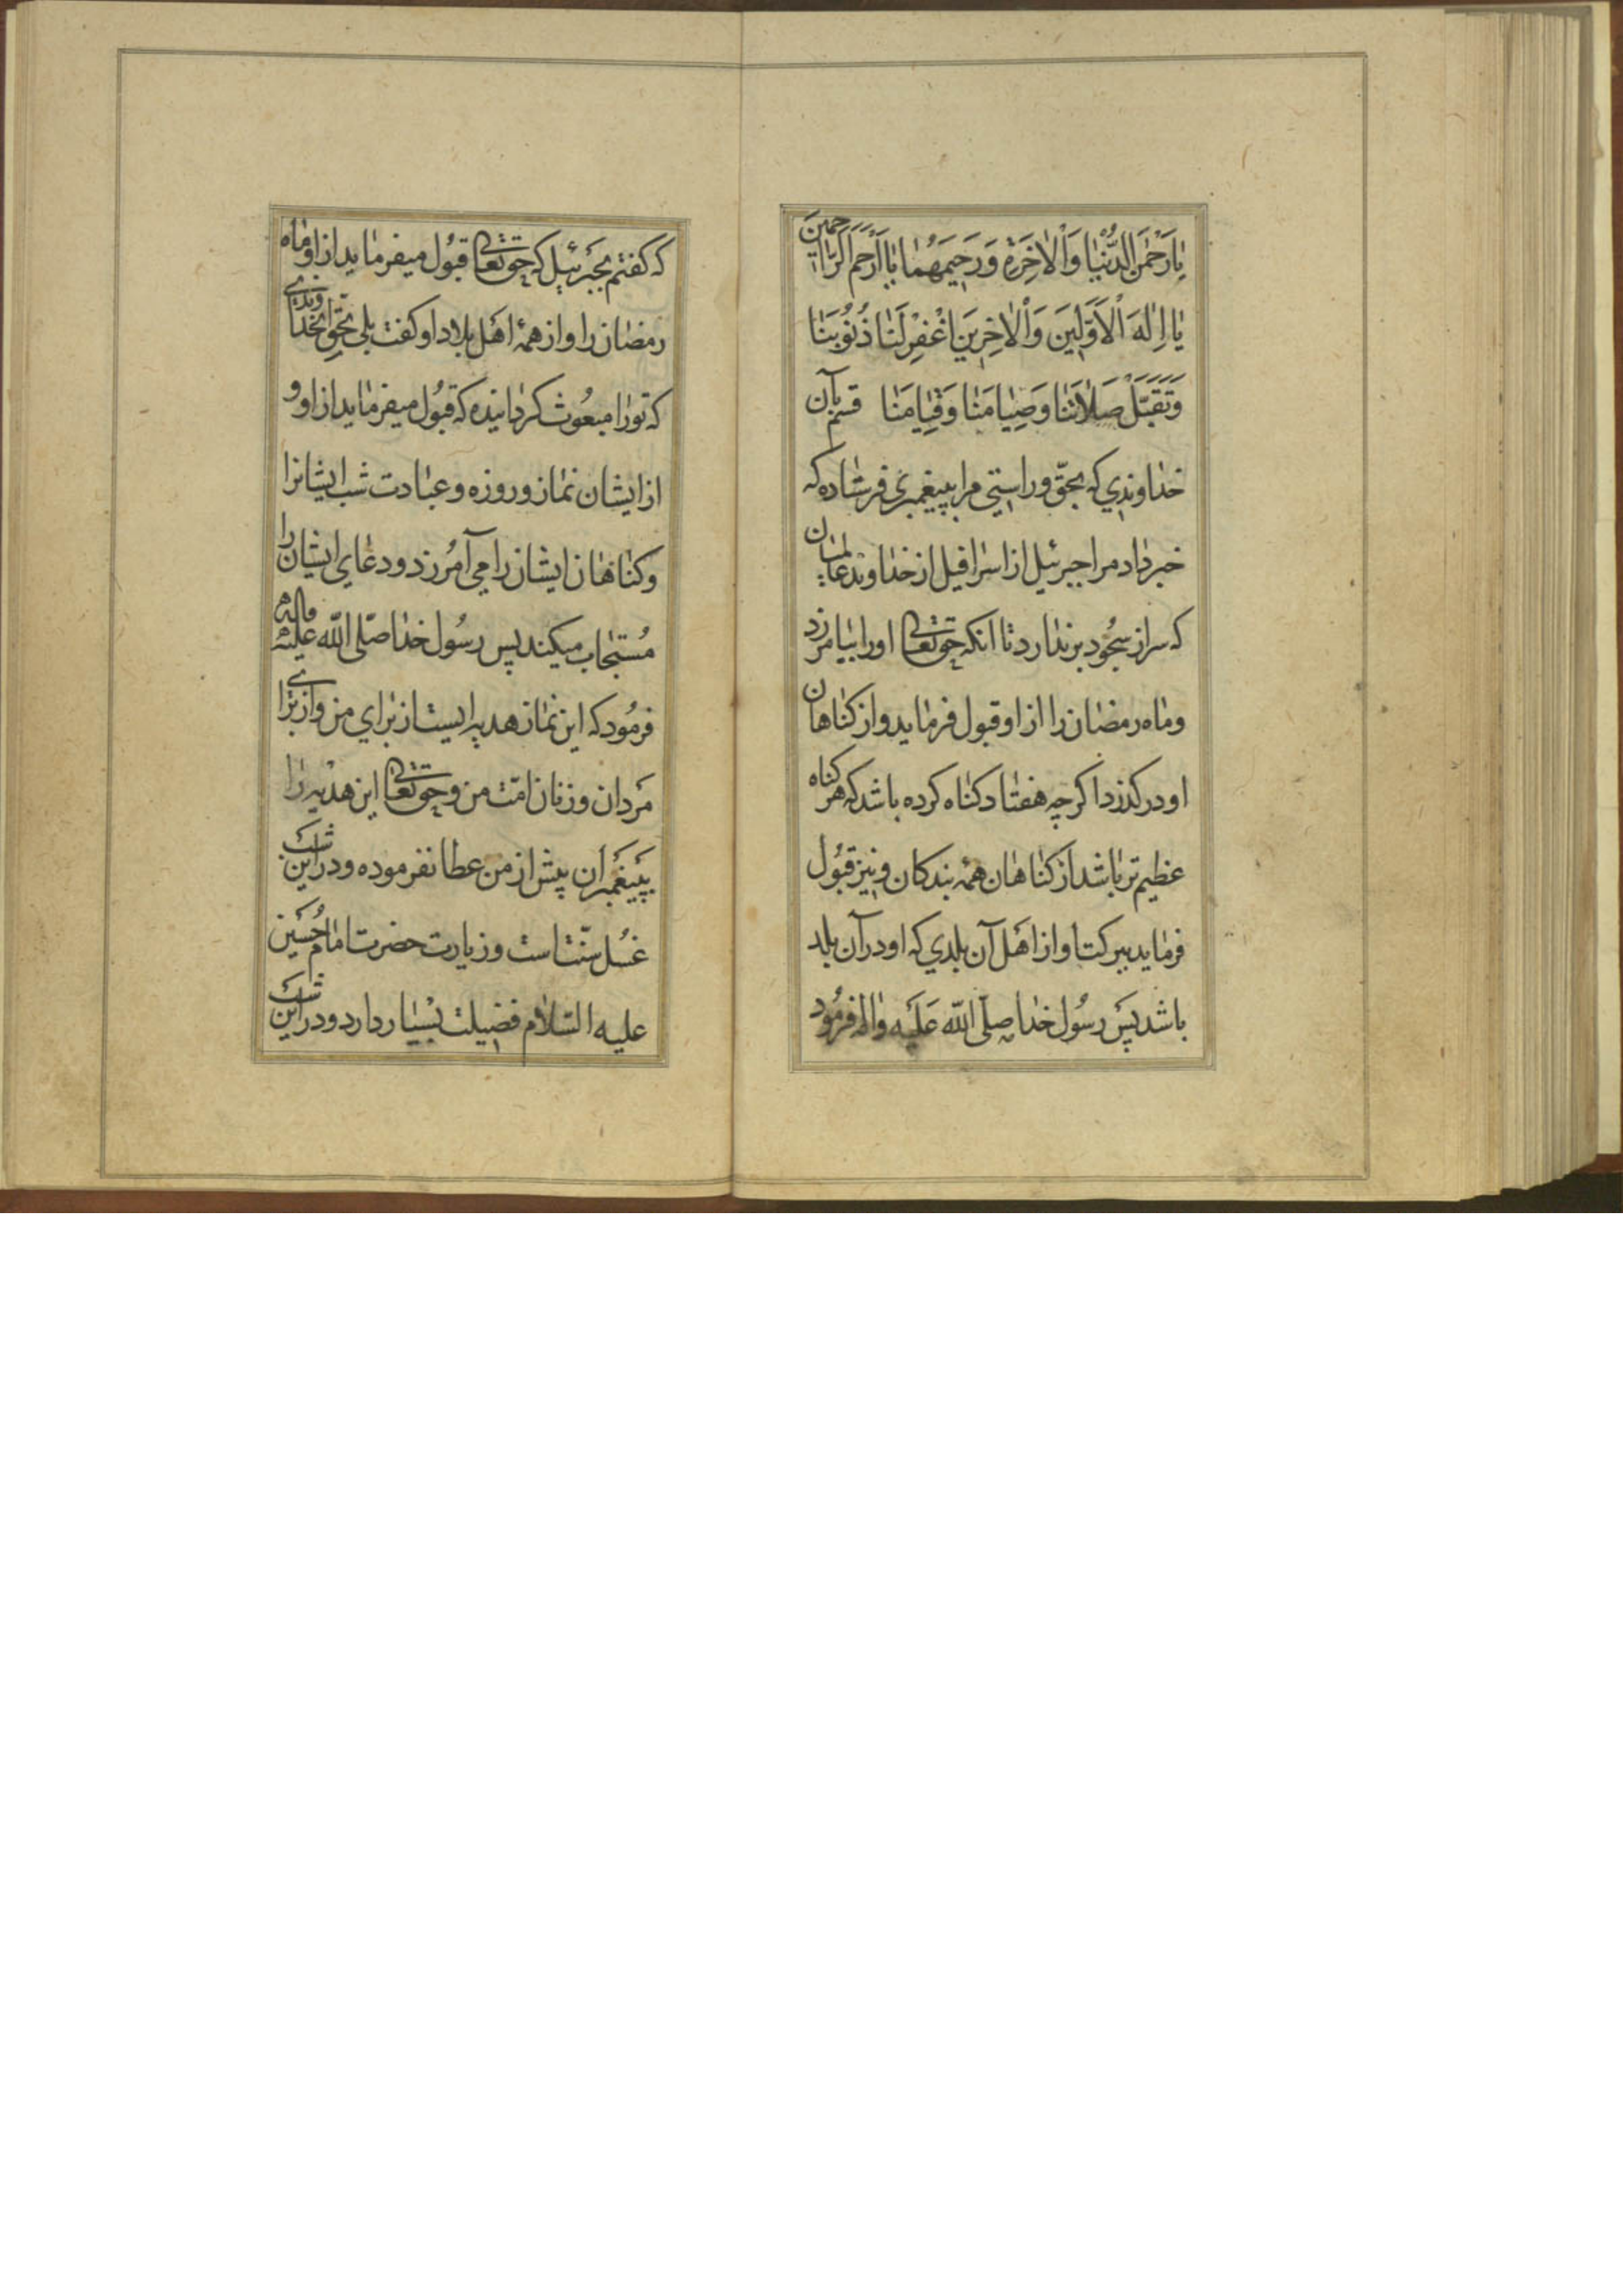 یٰا رَحْمٰنَ الدُّنْیٰا وَاْلاٰخِرَةِ وَرَحٖیمَهُمٰا یٰا اَرْحَمَ الرّٰاحِمٖینَ
یٰا اِلٰهَ اْلاَوَّلٖینَ وَاْلاٰخِرٖینَ اغْفِرْلَنٰا ذُنُوبَنٰا
وَتَقَبَّلْ صَلاٰتَنٰا وَصِیٰامَنٰا وَقِیٰامَنٰا قسم بآن
خداوندی که بحقّ و راستی مرا بپیغمبری فرستاده که
خبر داد مرا جبرئیل از اسرافیل از خداوند عالمیان
که سر از سجُود برندارد تا انکه حقتعالی او را بیامرزد
و ماه رمضان را از او قبول فرماید و از کناهان
او درکذرد اکرچه هفتاد کناه کرده باشد که هر کناه
عظیم تر باشد از کناهان همهٔ بندکان و نیز قبول
فرماید ببرکت او از اهل آن بلدی که او در آن بلد
باشد پس رسُول خدا صلّی اللّه علیه واله فرمُود
که کفتم بجبرئیل که حقتعالی قبُول میفرماید از او ماه
رمضان را و از همهٔ اهل بلاد او کفت بلی بحقّ خداوندی
که تو را مبعُوث کردانیده که قبُول میفرماید از او و
از ایشان نماز و روزه و عبادت شب ایشانرا
و کناهان ایشانرا می آمُرزد و دعای ایشان را
مُستجاب میکند پس رسُول خدا صلّی اللّه علیه واله
فرمُود که این نماز هدیه ایست از برای من و از برای
مَردان و زنان امّت من و حقتعالی این هدیه را
بپیغمبران پیش از من عطا نفرموده و در این شب
غسُل سنّت است و زیارت حضرت امام حُسَین
علیه السّلام فضیلت بسیار دارد و در این شب